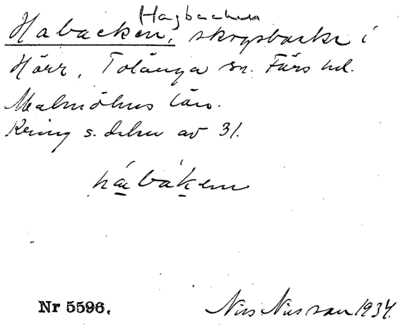 Hagbacken
Habacken, skogsbacke i
Hörr, Tolånga sn. Färs hd.
Malmöhus län.
Kring s. delen av 31.
håbákem
Nr 5596.
Nils Nilsson 1934.